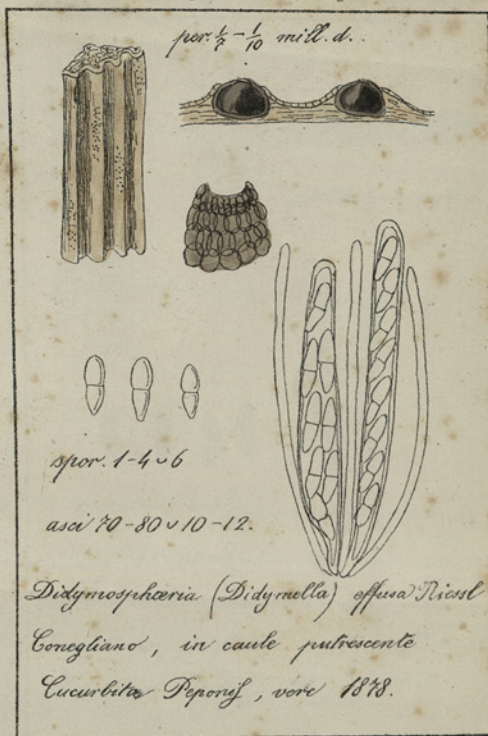 per. 1/7 - 1/10 mill. d.
spor. 1-4 v 6
asci 70-80 v 10-12.
Didymosphæria (Didymella) effusa Niessl
Conegliano, in caule putrescente
Cucurbitæ Peponis, vere 1878.